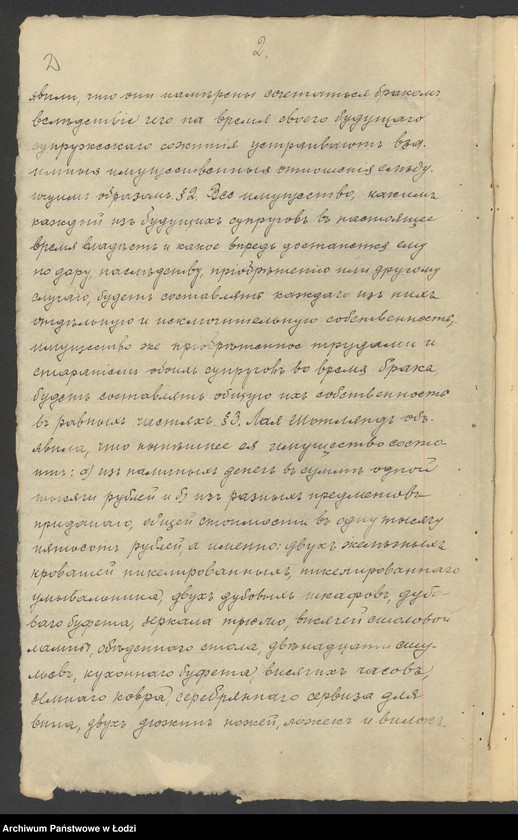 2.
явили, что они намѣрены сочетаться бракомъ,
вслѣдствіе чего на время своего будущаго
супружескаго сожитія устраиваютъ вза-
имныя имущественныя отношенія слѣду-
ющимъ образомъ. §2. Все имущество, какимъ
каждый изъ будущихъ супруговъ въ настоящее
время владѣетъ и какое впредь достанется ему
по дару, наслѣдству, пріобрѣтенію или другому
случаю, будетъ составлять каждаго изъ нихъ
отдѣльную и исключительную собственность,
имущество же пріобрѣтенное трудами и
стараніемъ обоихъ супруговъ во время брака
будетъ составлять общую ихъ собственность
въ равныхъ частяхъ. §3. Лая Шотляндъ объ-
явила, что нынѣшнее ея имущество состо-
итъ: а) изъ наличныхъ денегъ въ суммѣ одной
тысячи рублей и б) изъ разныхъ предметовъ
приданаго, общей стоимости въ одну тысячу
пятьсотъ рублей, а именно: двухъ желѣзныхъ
кроватей никелированныхъ, никелированнаго
умывальника, двухъ дубовыхъ шкафовъ, дубо-
ваго буфета, зеркала трюмо, висячей столовой
лампы, обѣденнаго стола, двѣнадцати сту-
льевъ, кухоннаго буфета, висячихъ часовъ,
ковра, серебрянаго сервиза для
вина, двухъ дюжинъ ножей, ложекъ и вилокъ
Archiwum Państwowe w Łodzi